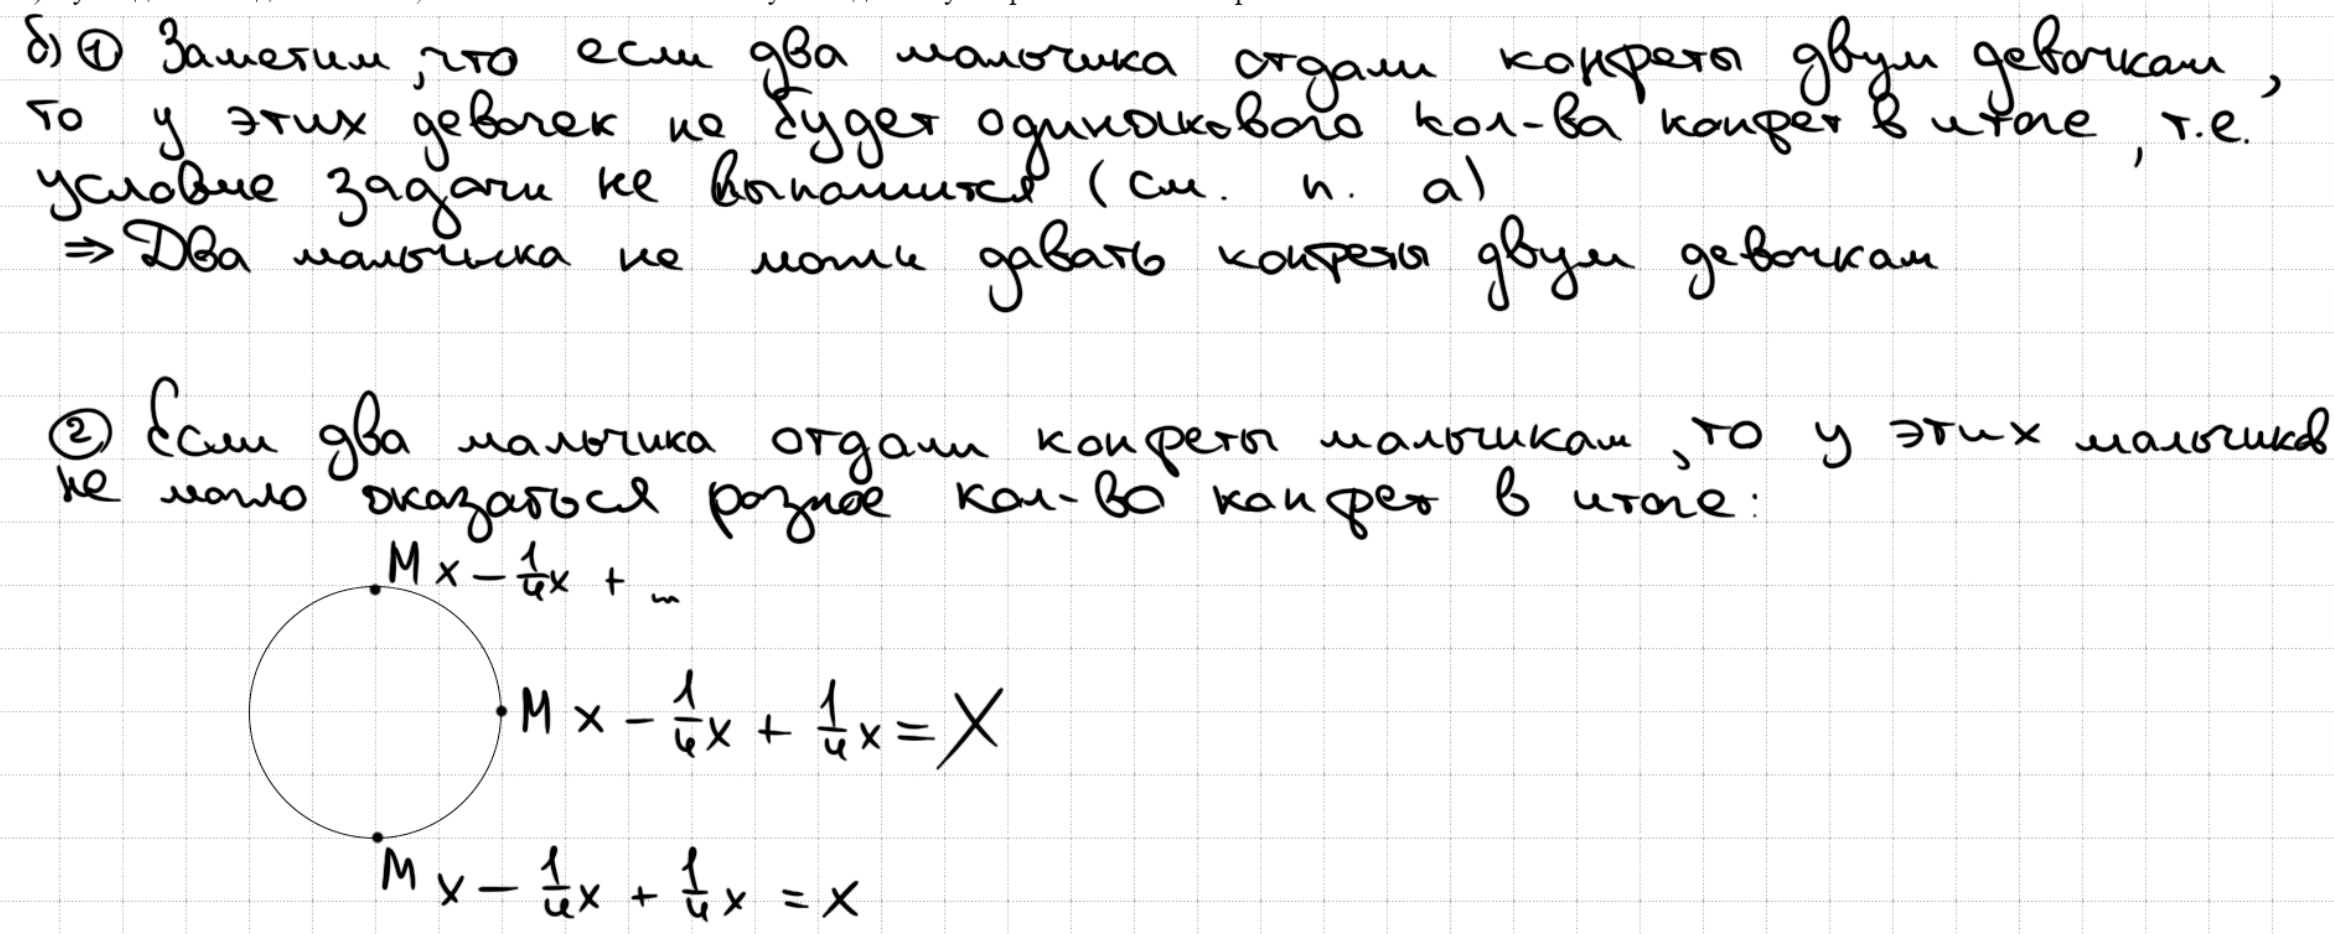 б) ① Заметим, что если два мальчика отдали конфеты двум девочкам,
то у этих девочек не будет одинакового кол-ва конфет в итоге, т.е.
условие задачи не выполнится (см. п. а)
⇒ Два мальчика не могли давать конфеты двум девочкам
② Если два мальчика отдали конфеты мальчикам, то у этих мальчиков
не могло оказаться разное кол-во конфет в итоге:
М x − 1/4x + ...
М x − 1/4x + 1/4x = X
М x − 1/4x + 1/4x = x